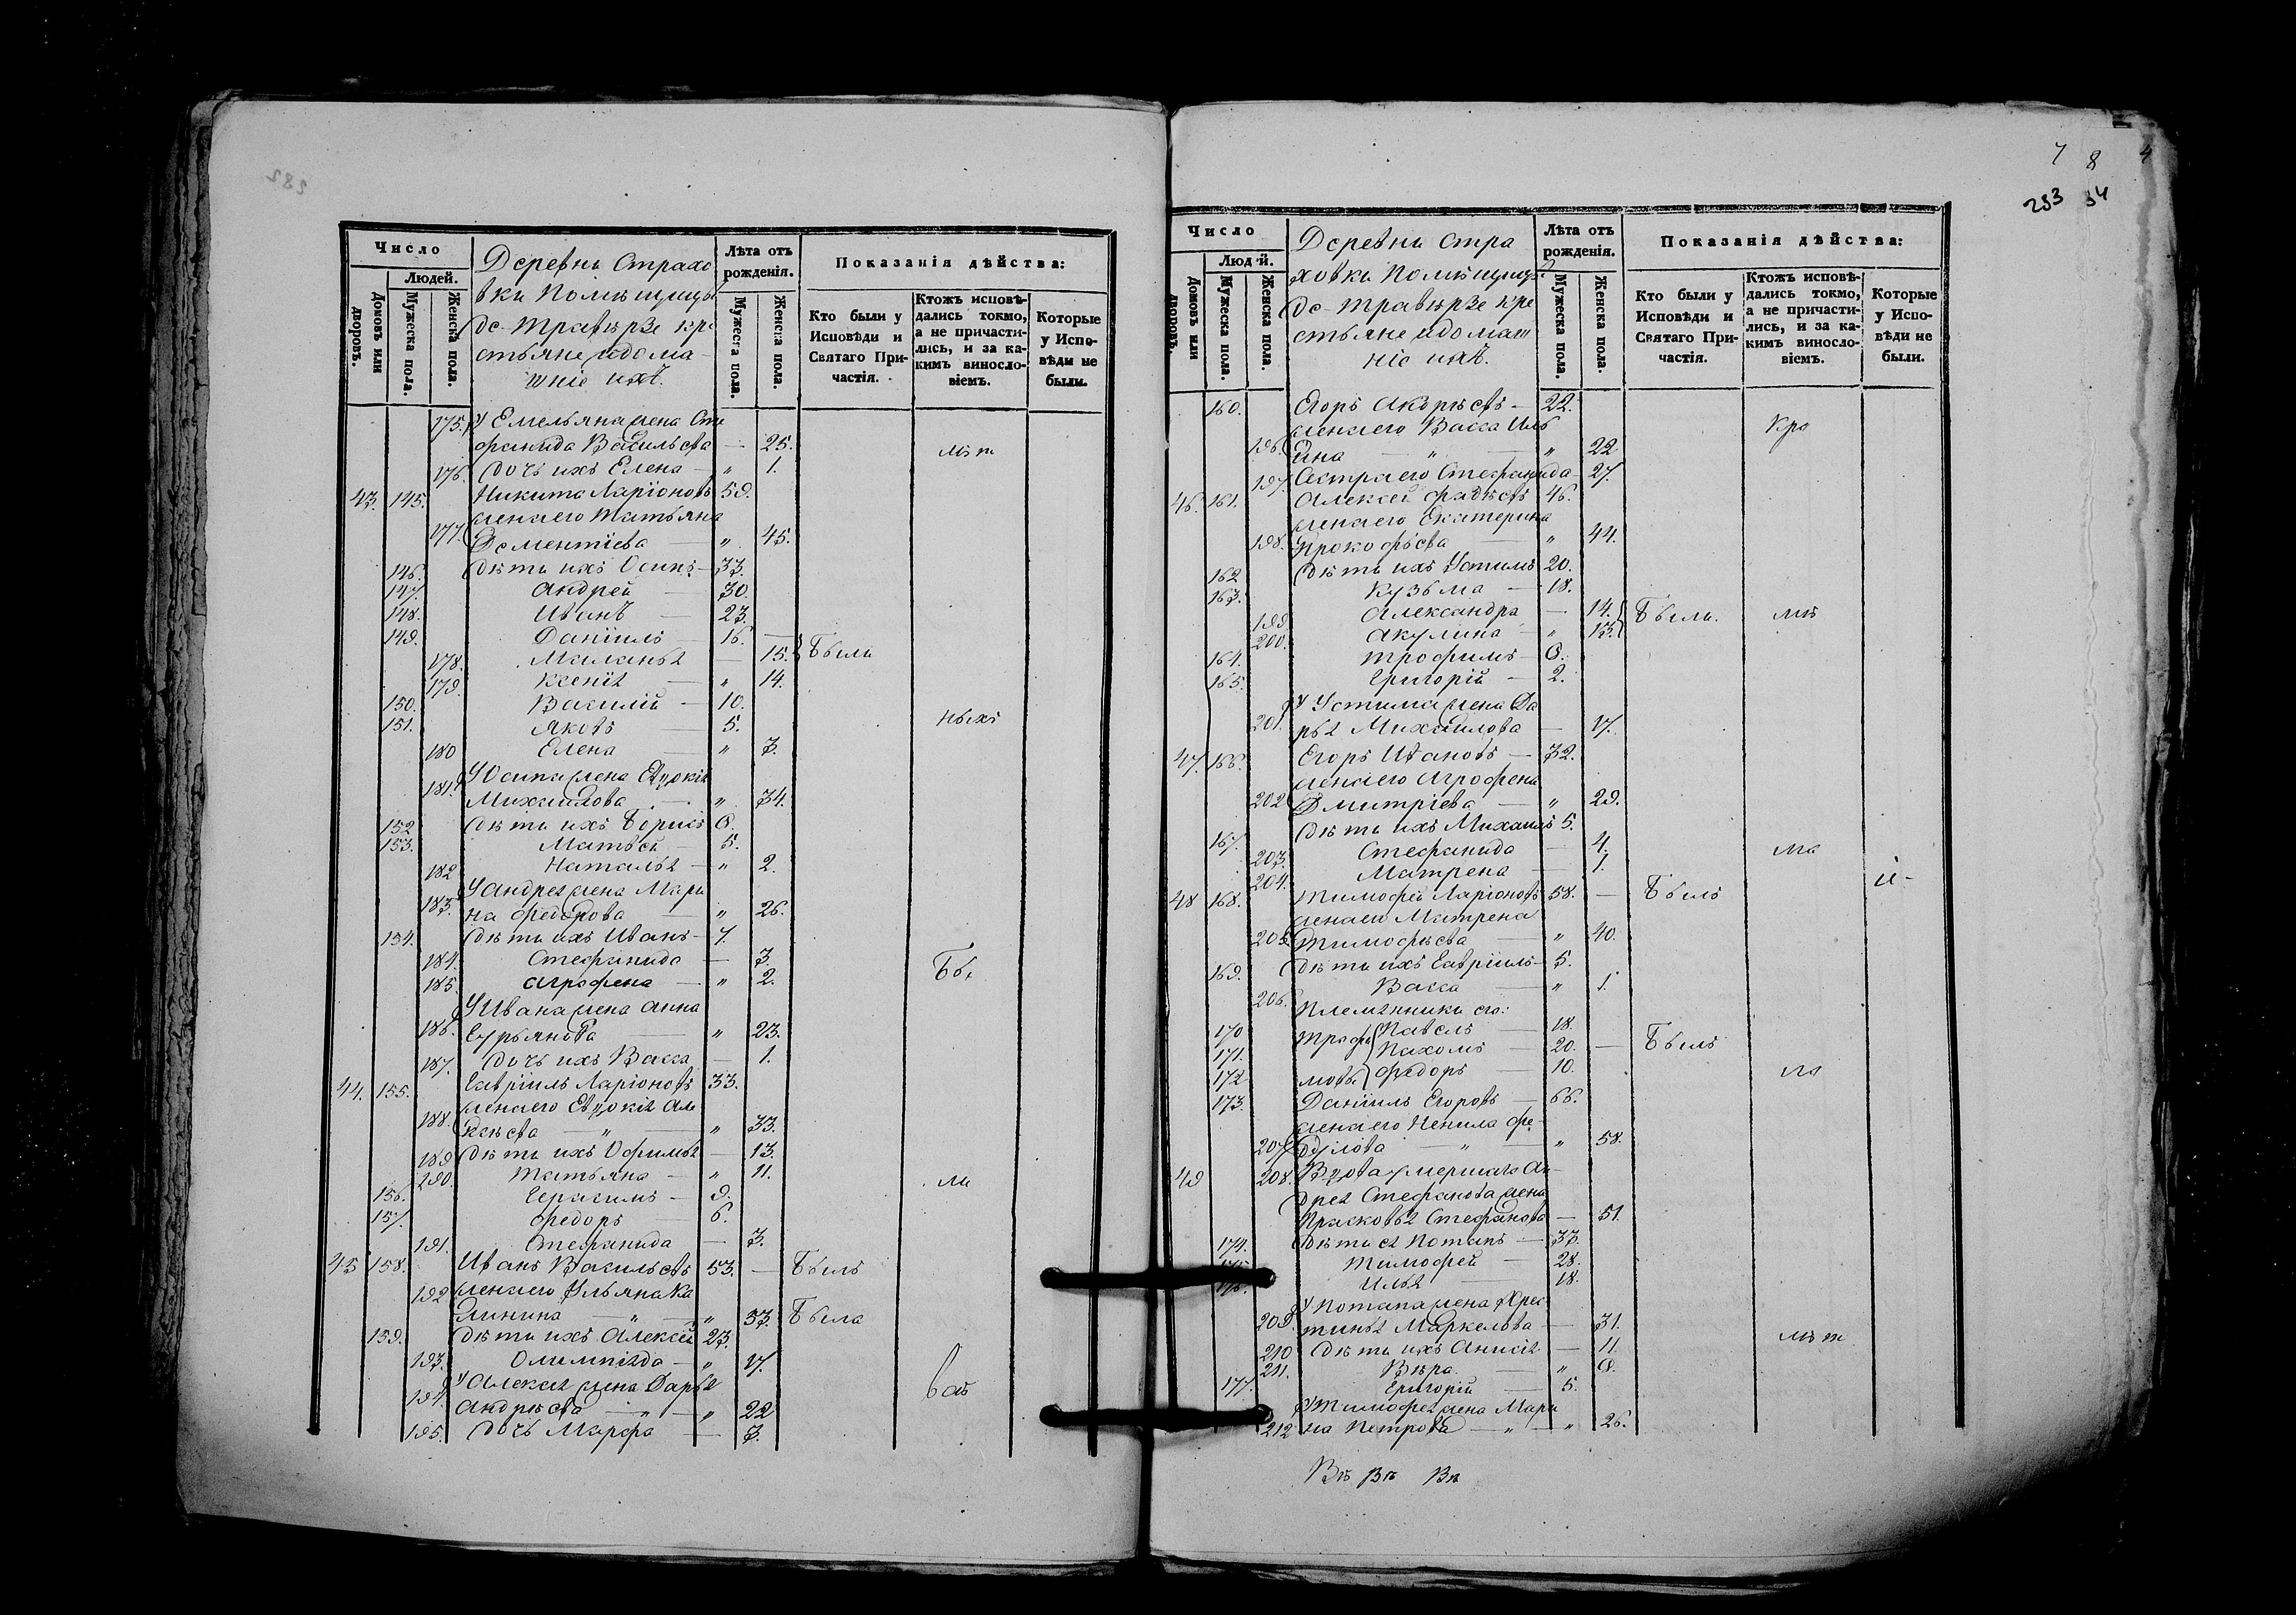 282
Число
Людей.
Домовъ или дворовъ.
Мужеска пола.
Женска пола.
Деревни Страхо
вки Помѣщицы
де-Траверзе кре
стьяне и дома-
шніе ихъ.
Лѣта отъ рожденія.
Мужеска пола.
Женска пола.
Показанія дѣйства:
Кто были у Исповѣди и Святаго Причастія.
Ктожъ исповѣ-
дались токмо,
а не причасти-
лись, и за ка-
кимъ винослo-
віемъ.
Которые у Испо-
вѣди не были.
175. У Емельяна жена Сте
фанида Васильева — 25.
176. дочь ихъ Елена — " 1.
43. 145. Никита Ларіоновъ 59.
жена его Татьяна
177. Дементіева — " 45.
146. дѣти ихъ Осипъ — 33.
147. Андрей — 30.
148. Иванъ — 23.
149. Даніилъ — 16. —
178. Маланья — 15. Были
179. Ксенія — " 14.
150. Василій — 10.
151. Яковъ — 5.
180 Елена — " 3.
У Осипа жена Евдокія
181. Михаилова — " 34.
152 дѣти ихъ Борисъ 8.
153. Матвей — 5.
182 Наталья — " 2.
У Андрея жена Мари
183. на Федорова — " 26.
154. дѣти ихъ Иванъ — 7.
184. Стефанида — 3.
185 Агрофена — " 2.
У Ивана жена Анна
186. Гурьянова — " 23.
187. дочь ихъ Васса — 1.
44. 155. Гавріилъ Ларіоновъ 33.
жена его Евдокія Але
188. ксѣева — " — " 33.
189 дѣти ихъ Офимья — 13.
190. Татьяна — " 11.
156. Герасимъ — 9.
157. Федоръ — 6.
191. Стефанида — 3.
45 158. Иванъ Васильевъ 53. — Былъ
192 жена его Ульяна Ка
линина — " — " 53. Была
159. дѣти ихъ Алексѣй 23.
193. Олимпіада — " 17.
У Алексѣя жена Дарья
194. Андрѣева — " — " 22
195. дочь Марфа — 3.
7 8 4
283 54
Число
Людей.
Домовъ или дворовъ.
Мужеска пола.
Женска пола.
Деревни Стра
ховки Помѣщицы
де-Траверзе кре
стьяне и домаш
ніе ихъ.
Лѣта отъ рожденія.
Мужеска пола.
Женска пола.
Показанія дѣйства:
Кто были у Исповѣди и Святаго При-
частія.
Ктожъ исповѣ-
дались токмо,
а не причасти-
лись, и за ка-
кимъ виносло-
віемъ.
Которые у Испо-
вѣди не были.
160. Егоръ — 22.
жена его Васса Иль
196. ина — " — " 22
197. Сестра его Стефанида 27.
46. 161. Алексей Фадѣевъ 46.
жена его Екатерина
198. Прокофьева — " 44.
162 дѣти ихъ Устимъ 20.
163. Кузьма — 18.
199. Александра — 14. Были.
200. Акулина — " 13.
164. Трофимъ — 8.
165. Григорій — 2.
У Устима жена Да
201. рья Михайлова — 17.
47. 166. Егоръ Ивановъ — 32.
жена его Агрофена
202 Дмитріева — " 29.
167. дѣти ихъ Михаилъ 5.
203. Стефанида — 4.
204. Матрена — 1.
48 168. Тимофей Ларіоновъ 58. — Былъ
жена его Матрена
205. Тимофѣева — " 40.
169. дѣти ихъ Гавріилъ — 5.
206. Васса — " 1.
Племянники его:
170 Трофи Павелъ — 18.
171. Пахомъ — 20. — Былъ
172 мовы Федоръ — 10.
173. Даніилъ Егоровъ — 66.
жена его Ненила Фе-
207. дулова — " — " 58.
49 208. Вдова умершаго Ан-
дрея Стефанова жена
Прасковья Стефанова — 51.
174. дѣти ея Потапъ — 33.
175. Тимофей — 28.
176. Илья — 18.
У Потапа жена Хрис
209. тинья Маркелова — 31.
210 дѣти ихъ Анисія — 11.
211. Вѣра — " 8.
177. Григорій — 5.
У Тимофея жена Мари
212 на Петрова — " — " 26.